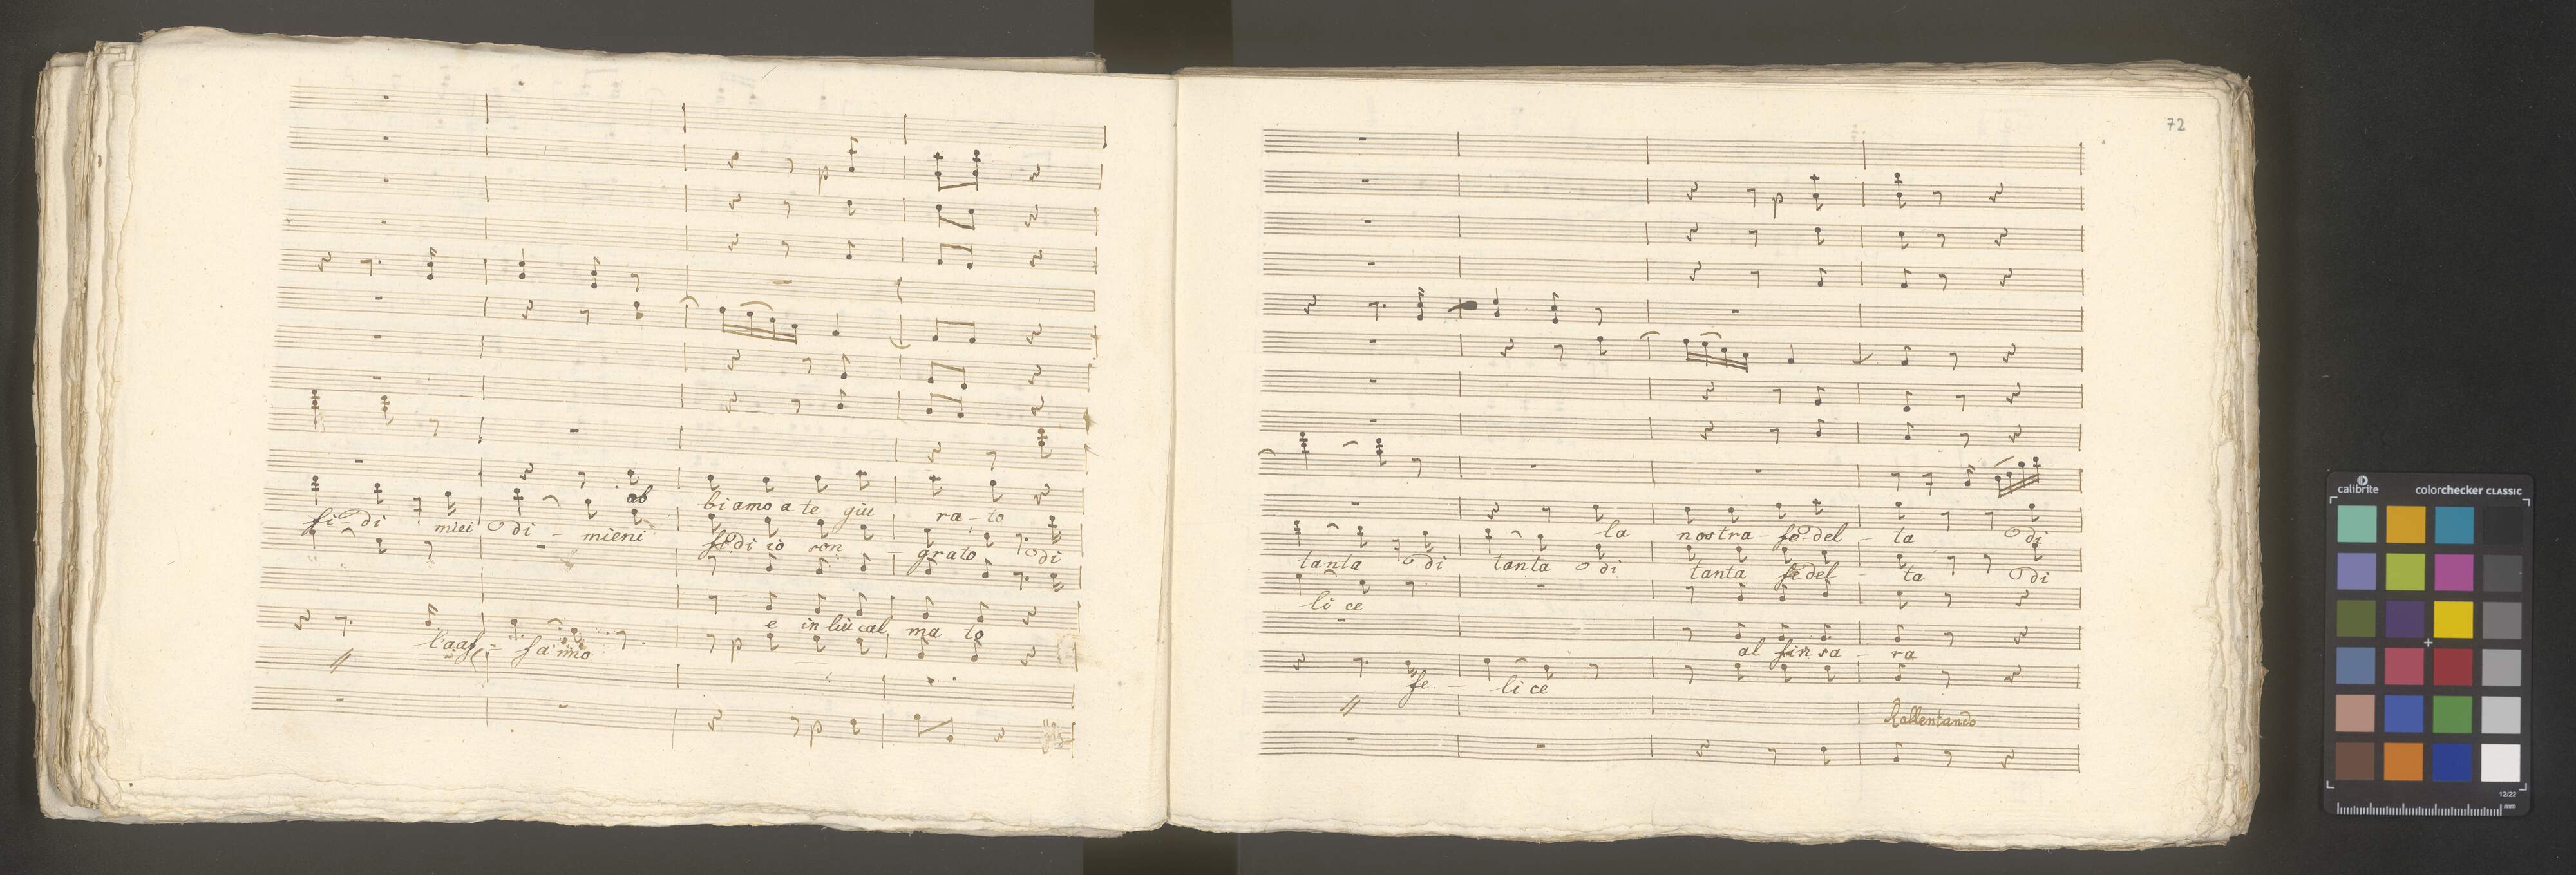 p
ab biamo a te giu ra-to
fi-di miei di - miei ni fidi io son grato di
e in lui cal ma to
l'aaf- fanno
p
p
72
p
la nostra - fe-del - ta di
tanta di tanta di tanta fedel - ta di
li ce
al fin sa - ra
fe - li ce
Rallentando
calibrite colorchecker CLASSIC
12/22
mm